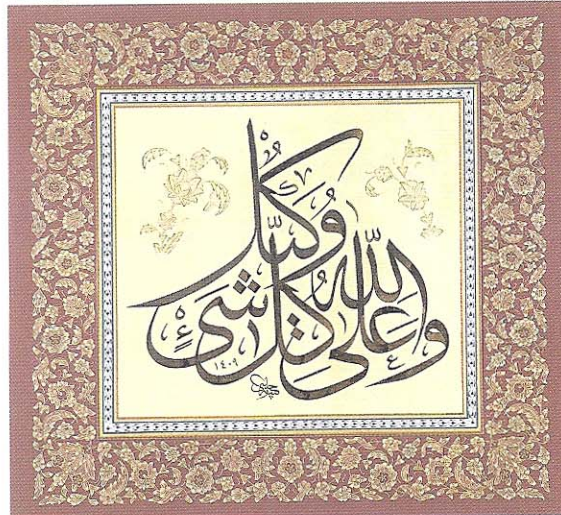 والله على كل شىء وكيل
١٤٠٩